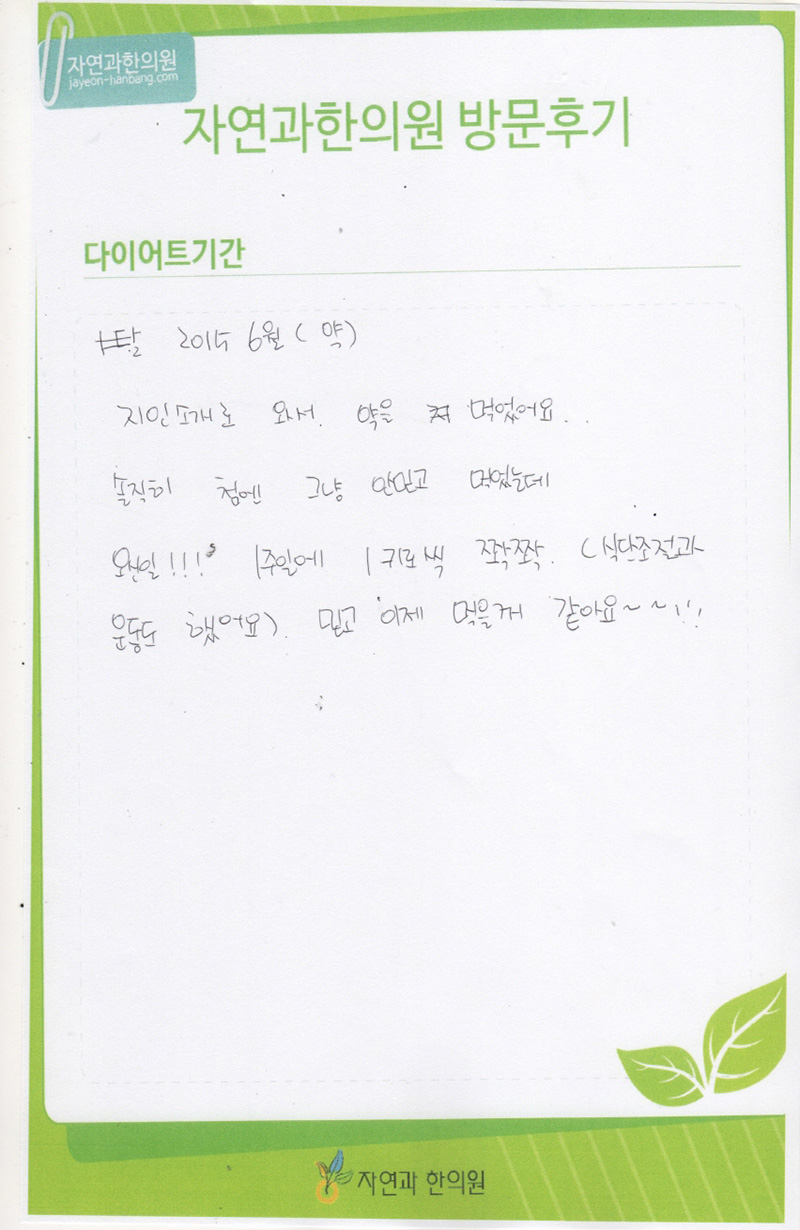 자연과한의원
jayeon-hanbang.com
자연과한의원 방문후기
다이어트기간
달 2015 6월 (약)
지인소개로 와서. 약을 먹었어요..
솔직히 첨엔 그냥 안믿고 먹었는데
왠일!!! 1주일에 1키로씩 쫙쫙. (식단조절과
운동도 했어요). 믿고 이제 먹을께 같아요~~!!!
자연과 한의원